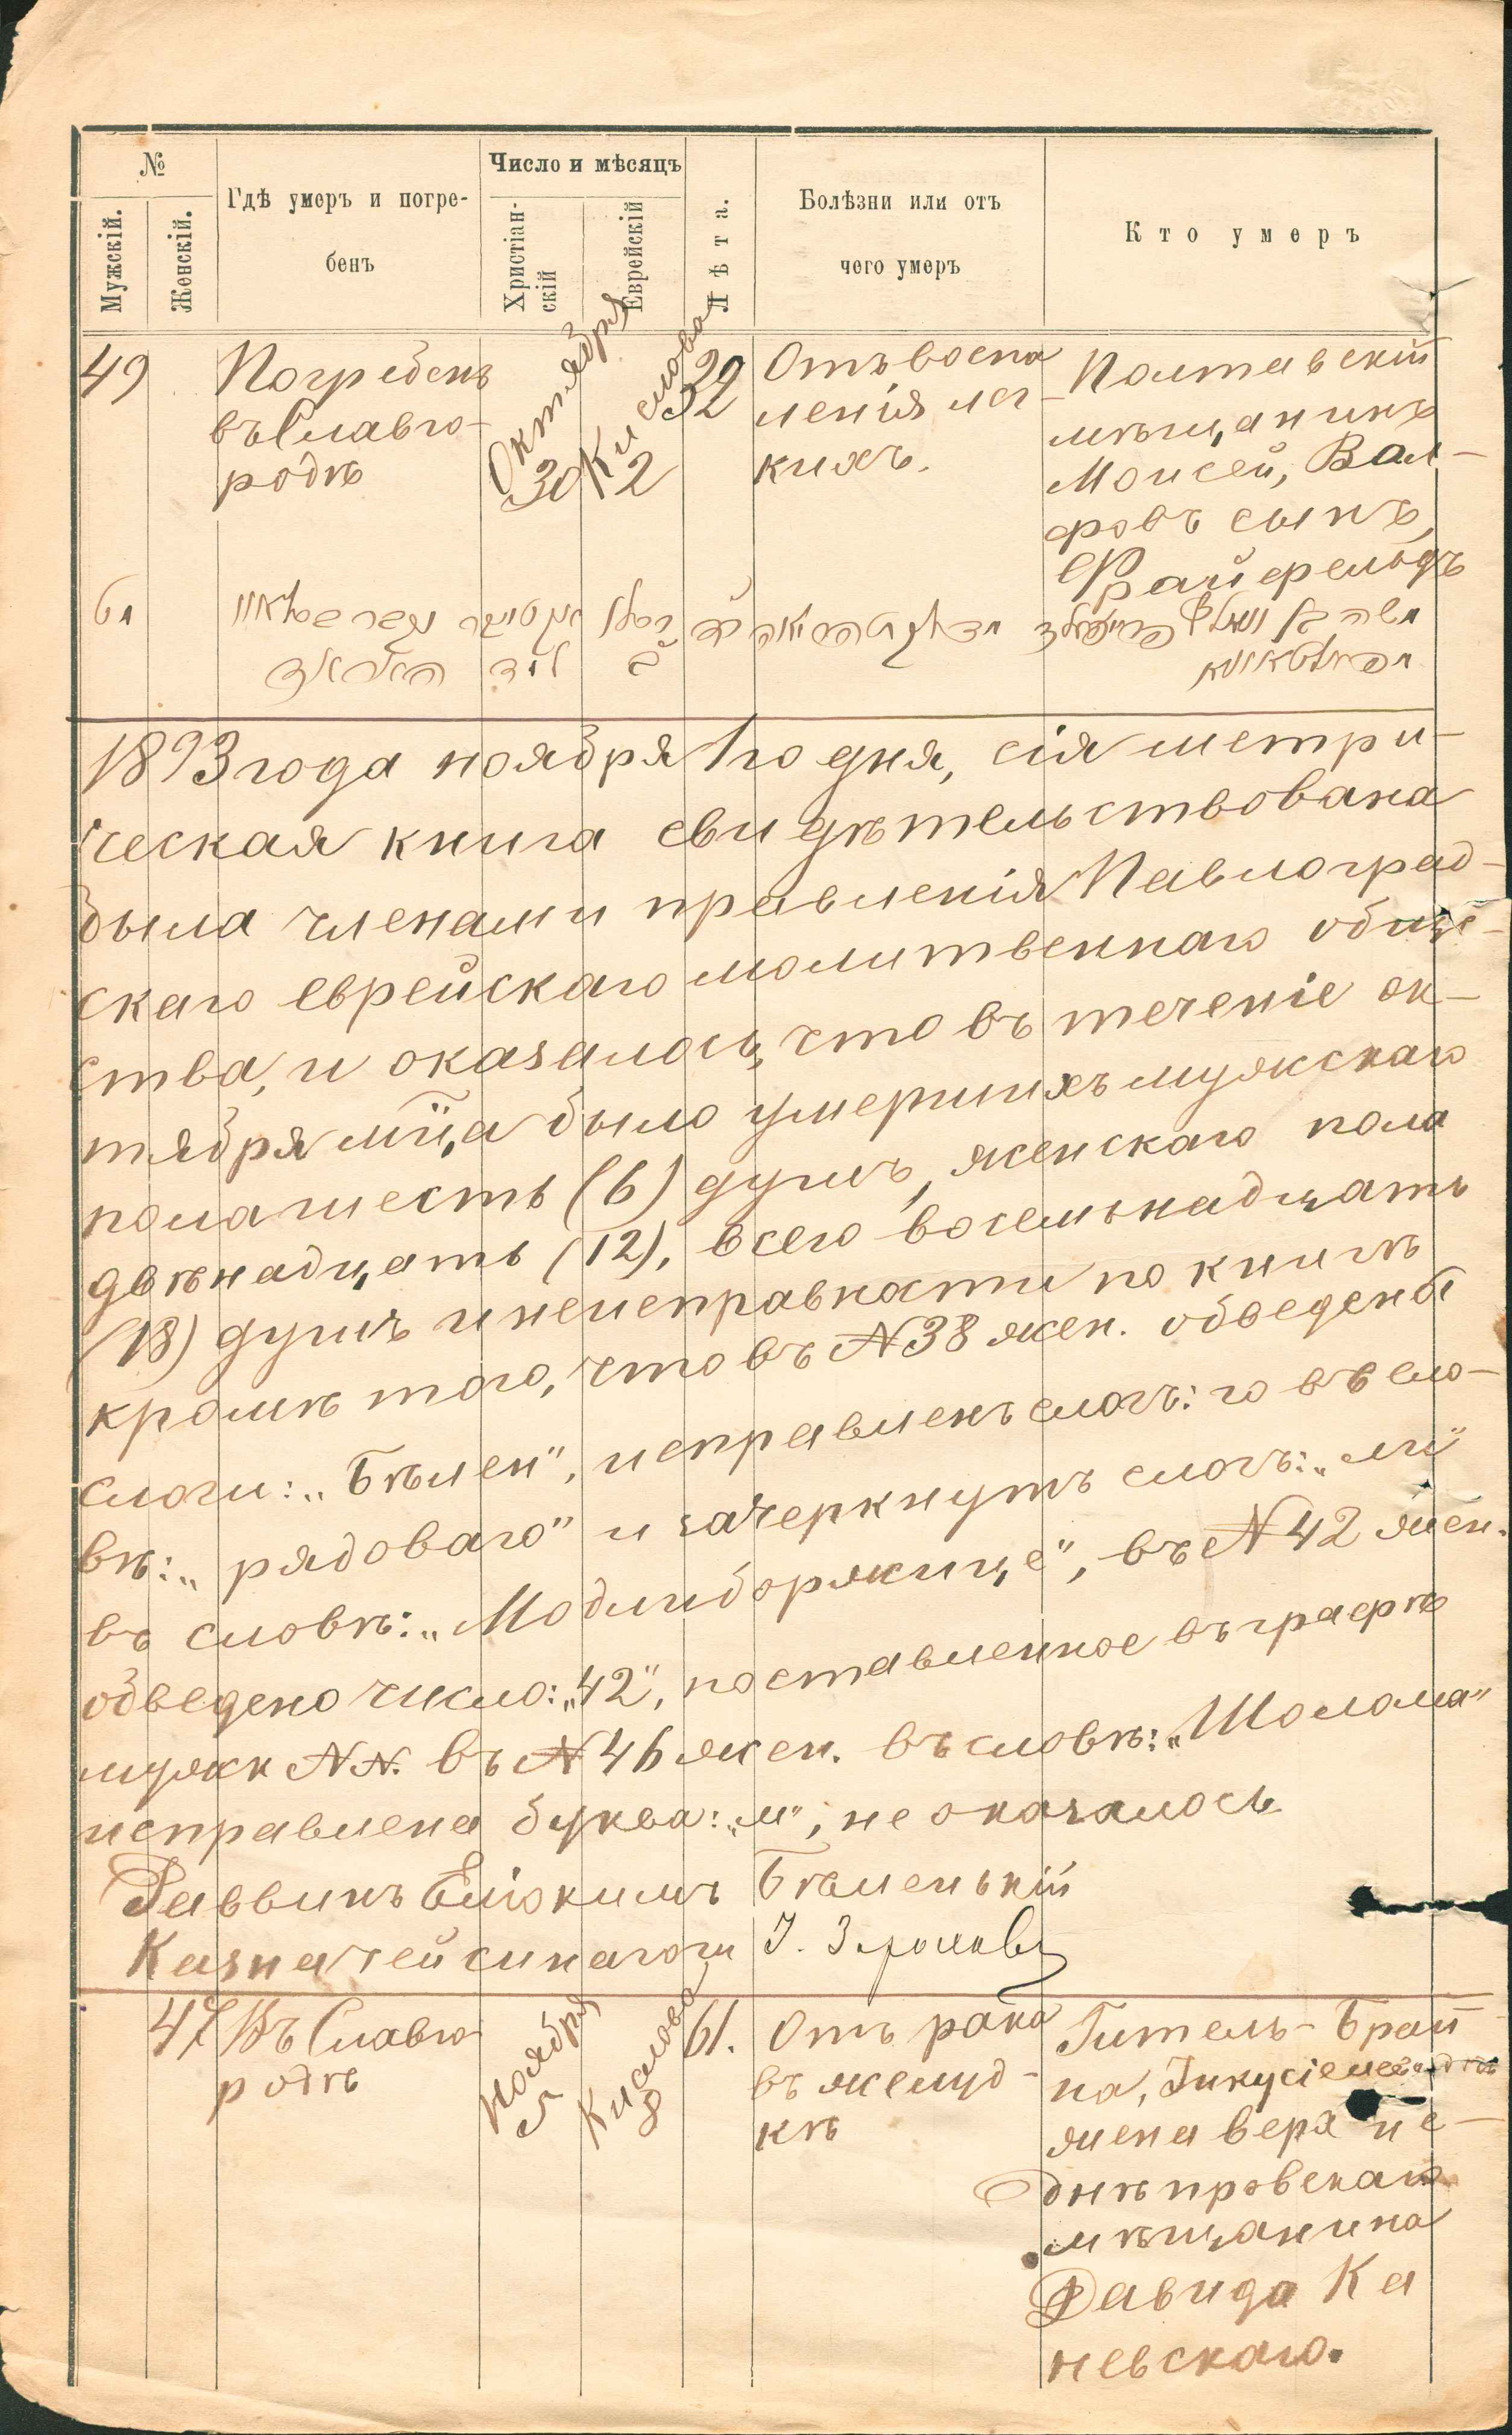 №
Мужскій.
Женскій.
Гдѣ умеръ и погре-
бенъ
Число и мѣсяцъ
Христіан-
скій
Еврейскій
Лѣта.
Болѣзни или отъ
чего умеръ
Кто умеръ
49
Погребенъ
въ Славго-
родѣ
Октября
30
Кислова
2
32
Отъ воспа
ленія лег-
кихъ.
Полтавскій
мѣщанинъ
Моисей, Вол-
фовъ сынъ,
Файфельдъ
1893 года ноября 1го дня, сія метри-
ческая книга свидѣтельствована
была членами правленія Павлоград-
скаго еврейскаго молитвеннаго обще-
ства, и оказалось, что въ теченіе ок-
тября мца было умершихъ мужскаго
пола шесть (6) душъ, женскаго пола
двѣнадцать (12), всего восемьнадцать
(18) душъ и неисправности по книгѣ
кромѣ того, что въ №38 жен. обведены
слоги: „Бѣлен", исправленъ слогъ: го въ сло-
вѣ: „рядоваго" и зачеркнутъ слогъ: „ли"
въ словѣ: „Модлиборжице", въ №42 жен.
обведено число: „42", поставленное въ графѣ
мужк №№. въ №46 жен. въ словѣ: „Шолома"
исправлена буква: „м", не оказалось
Раввинъ Еліокимъ Бѣленькій
Казначей синагоги
47
Въ Славго-
родѣ
Ноября
5
Кислова
8
61.
Отъ рака
въ желуд-
кѣ
Гитель-Брай-
на,
жена верхне-
днѣпровскаго
мѣщанина
Давида Ка
невскаго.